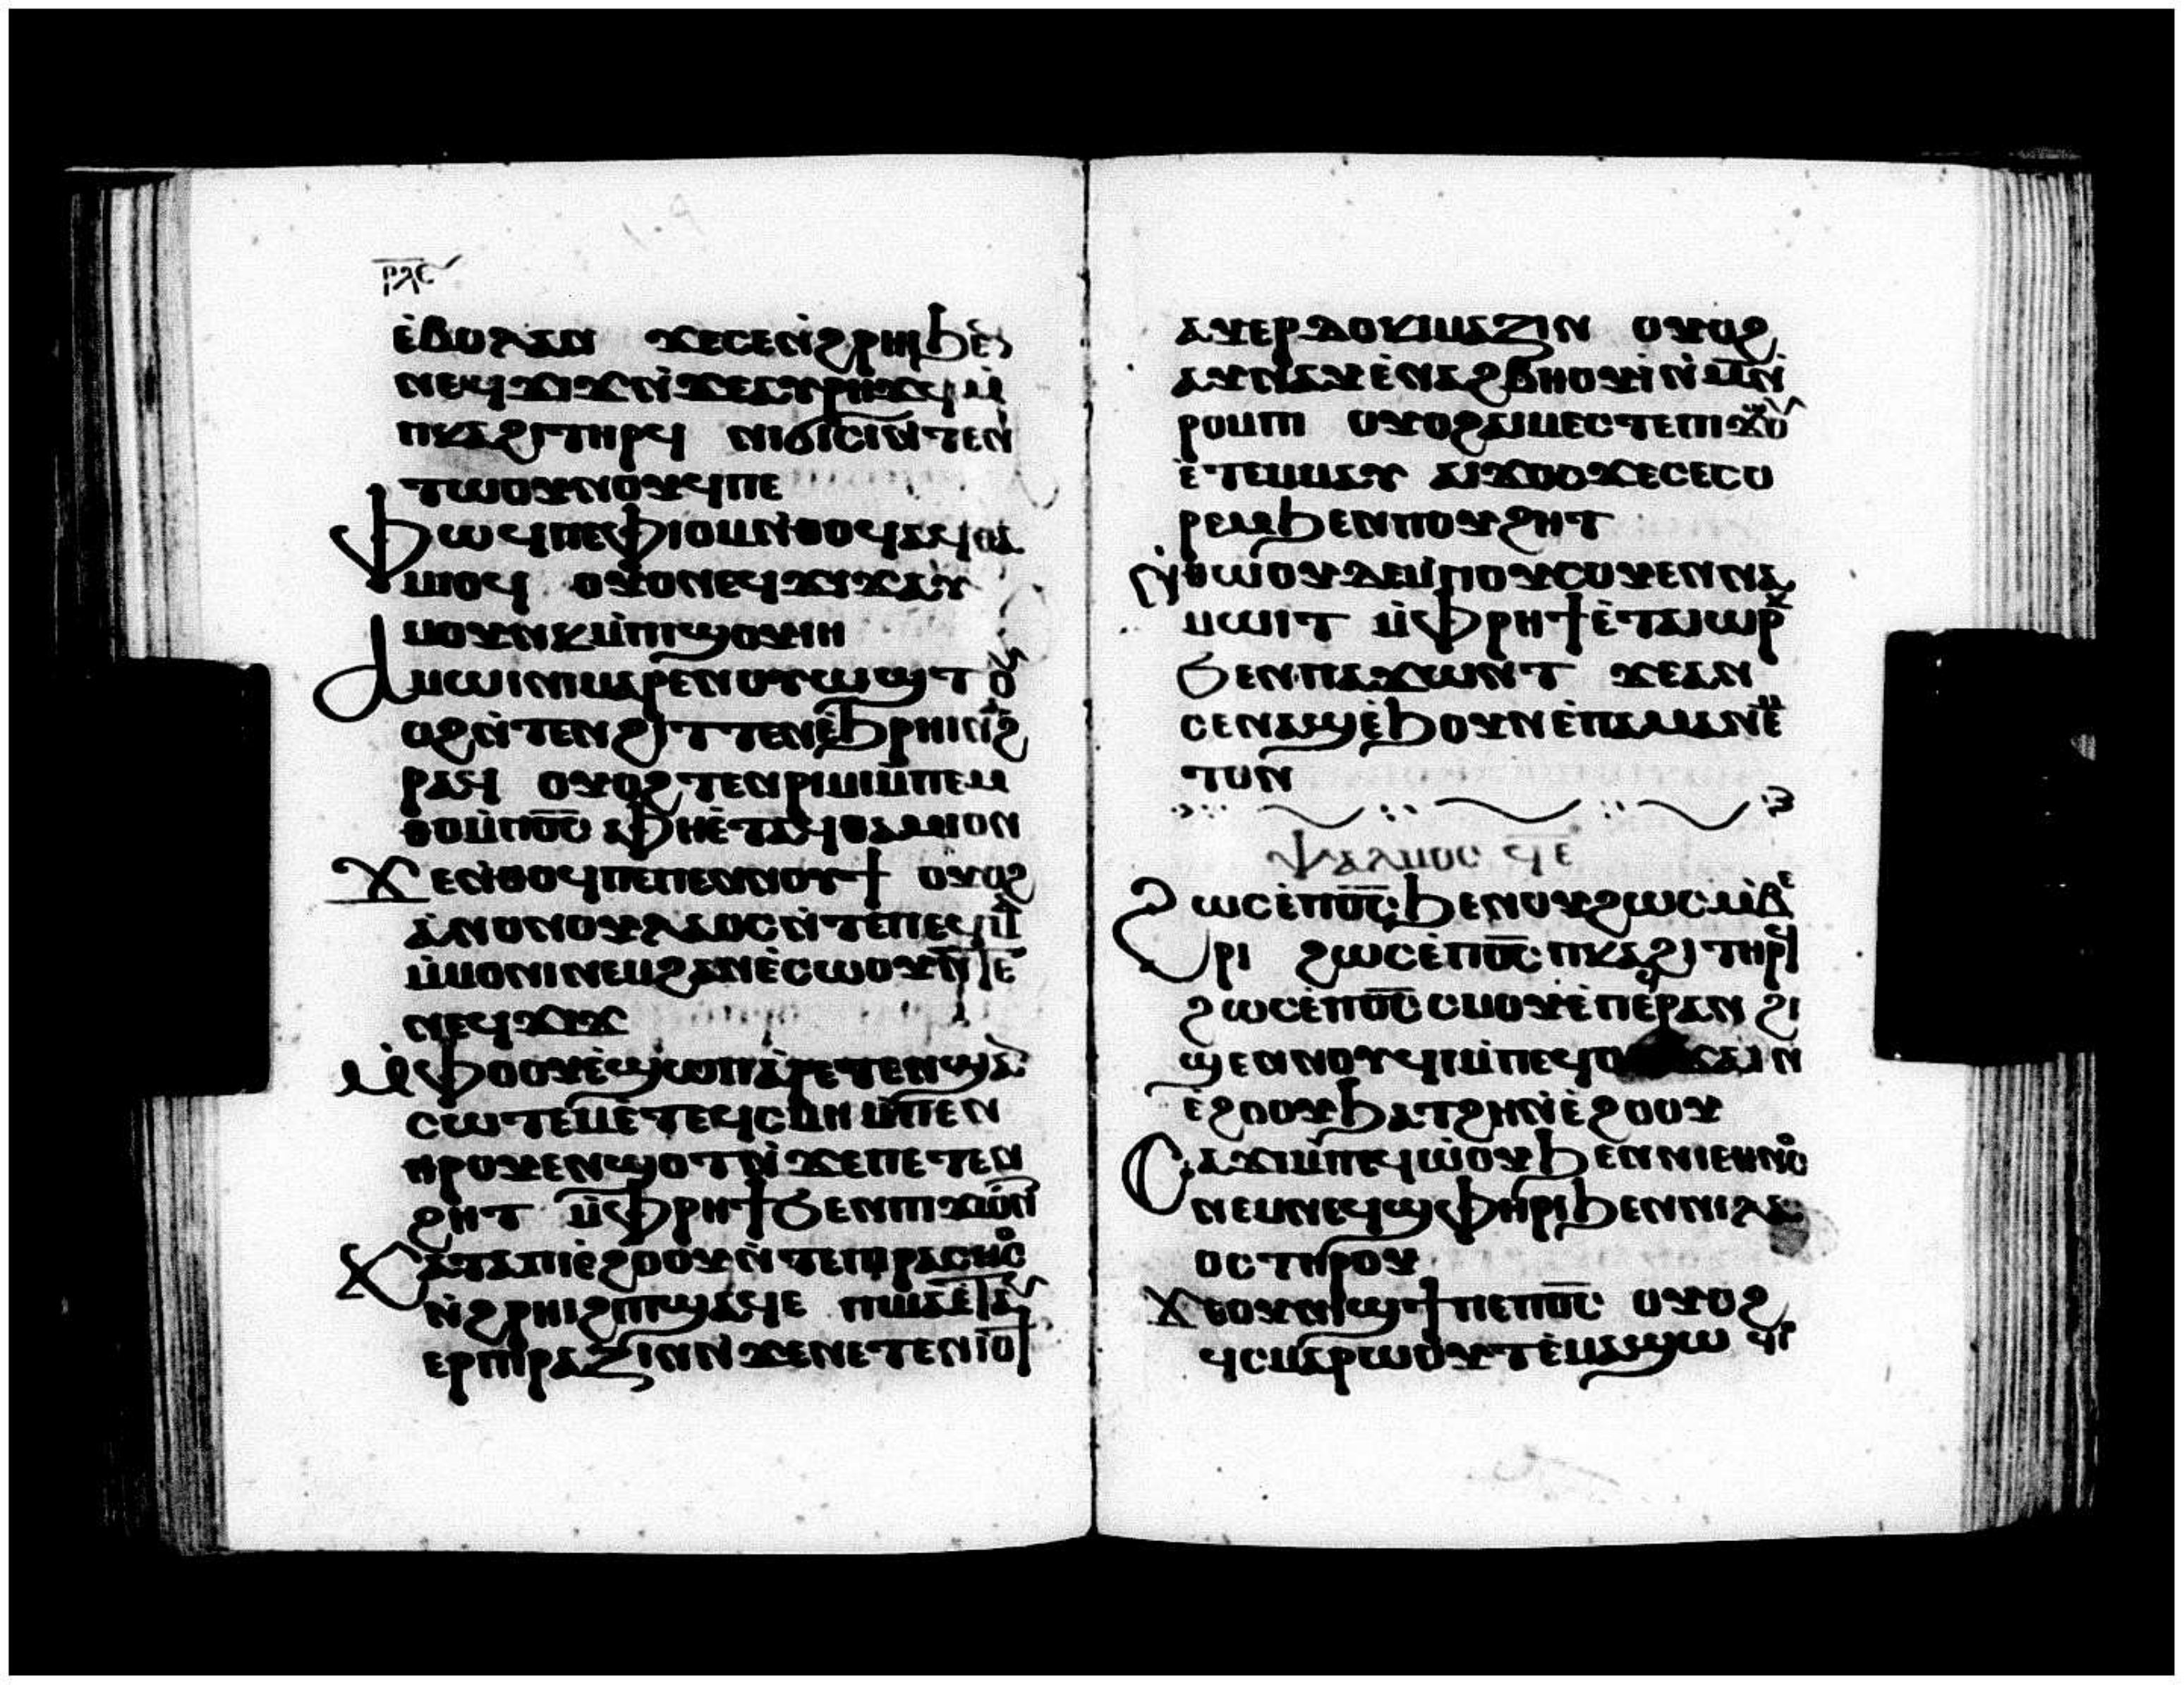 ⲣⲗⲋ
ⲉ̇ⲃⲟⲗⲁⲛ ϫⲉⲥⲉⲛ̇ϩⲣⲏⲓϧⲉⲛ
ⲛⲉϥϫⲓϫⲛ̇ϫⲉⲁⲩⲣⲏϫϥⲙ̇
ⲡⲕⲁϩⲓⲧⲏⲣϥ ⲛⲓϭⲓⲥⲓⲛ̇ⲧⲉⲛ
ⲧⲱⲟⲩⲛⲟⲩϥⲡⲉ
Ⲫⲱϥⲡⲉⲫⲓⲟⲙⲛ̇ⲑⲟϥⲁϥⲑⲁ
ⲙⲓⲟϥ ⲟⲩⲟⲛⲉϥϫⲓϫⲁⲩ
ⲙⲟⲩⲛⲕⲙ̇ⲡⲓϣⲟⲩⲓⲏ
Ⲁⲙⲱⲓⲛⲓⲙⲁⲣⲉⲛⲟⲩⲱϣⲧⲟⲩ
ⲟϩⲛ̇ⲧⲉⲛϩⲓⲧⲧⲉⲛⲉ̇ϧⲣⲏⲓⲛ̇ϩ
ⲣⲁϥ ⲟⲩⲟϩⲧⲉⲛⲣⲓⲙⲓⲙ̇ⲡⲉⲙ
ⲑⲟⲙ̇ⲡⲟ̅ⲥ̅ ⲁⲫⲏⲉ̇ⲧⲁϥⲑⲁⲙⲓⲟⲛ
Ϫⲉⲛ̇ⲑⲟϥⲡⲉⲡⲉⲛⲛⲟⲩϯ ⲟⲩⲟϩ
ⲁ̇ⲛⲟⲛⲟⲩⲗⲁⲟⲥⲛ̇ⲧⲉⲡⲉϥⲙⲁ
ⲙ̇ⲙⲟⲛⲓⲛⲉⲙϩⲁⲛⲉ̇ⲥⲱⲟⲩⲛ̇ⲧⲉ
ⲛⲉϥϫⲓϫ
Ⲙ̇ⲫⲟⲟⲩⲉ̇ϣⲱⲡⲁ̇ⲣⲉⲧⲉⲛϣⲁⲛ
ⲥⲱⲧⲉⲙⲉ̇ⲧⲉϥⲥⲙⲏ ⲙ̇ⲡⲉⲛ
ⲑⲣⲟⲩⲉⲛϣⲟⲧⲛ̇ϫⲉⲡⲉⲧⲉⲛ
ϩⲏⲧ ⲙ̇ⲫⲣⲏϯϭⲉⲛⲡⲓϫⲱⲛⲧ
Ⲕⲁⲧⲁⲡⲓⲉ̇ϩⲟⲟⲩⲛ̇ⲧⲉⲡⲓⲣⲁⲥⲙⲟⲥ
ⲛ̇ϩⲣⲏⲓϩⲓⲡϣⲁϥⲉ ⲡⲓⲙⲁⲉ̇ⲧⲁⲩ
ⲉⲣⲡⲓⲣⲁⲍⲓⲛⲛ̇ϫⲉⲛⲉⲧⲉⲛⲓⲟϯ
ⲁⲩⲉⲣⲇⲟⲕⲓⲙⲁⲍⲓⲛ ⲟⲩⲟϩ
ⲁⲩⲛⲁⲩⲉ̇ⲛⲁϩⲃⲏⲟⲩⲓ̇ⲛ̇ⲙ̅ⲛ̇
ⲣⲟⲙⲡⲓ ⲟⲩⲟϩⲁⲓⲙⲉⲥⲧⲉⲡⲓϫⲱⲟⲩ
ⲉ̇ⲧⲉⲙⲙⲁⲩ ⲁⲓϫⲟⲥϫⲉⲥⲉⲥⲟ
ⲣⲉⲙϧⲉⲛⲡⲟⲩϩⲏⲧ
Ⲛ̇ⲑⲱⲟⲩⲇⲉⲙ̇ⲡⲟⲩⲥⲟⲩⲉⲛⲛⲁ
ⲙⲱⲓⲧ ⲙ̇ⲫⲣⲏϯⲉ̇ⲧⲁⲓⲱⲣⲕ
ϭⲉⲛⲡⲁϫⲱⲛⲧ ϫⲉⲁⲛ
ⲥⲉⲛⲁϣⲉ̇ϧⲟⲩⲛⲉ̇ⲡⲁⲙⲁⲛⲉⲙ
ⲧⲟⲛ
Ⲯⲁⲗⲙⲟⲥ ϥⲉ
Ϩⲱⲥⲉ̇ⲡⲟ̅ⲥ̅ϧⲉⲛⲟⲩϩⲱⲥⲙ̇ⲃⲉ
ⲣⲓ ϩⲱⲥⲉ̇ⲡⲟ̅ⲥ̅ⲡⲕⲁϩⲓⲧⲏⲣϥ
ϩⲱⲥⲉ̇ⲡⲟ̅ⲥ̅ⲥⲙⲟⲩⲉ̇ⲡⲉϥⲣⲁⲛ ϩⲓ
ϣⲉⲛⲛⲟⲩϥⲓⲙ̇ⲡⲉϥⲟⲩϫⲁⲓⲛ̇
ⲉ̇ϩⲟⲟⲩϧⲁⲧϩⲏⲛ̇ⲉ̇ϩⲟⲟⲩ
Ⲥⲁϫⲓⲙ̇ⲡⲉϥⲱ̇ⲟⲩϧⲉⲛⲛⲓⲉⲑⲛⲟⲥ
ⲛⲉⲙⲛⲉϥϣⲫⲏⲣⲓϧⲉⲛⲛⲓⲗⲁ
ⲟⲥⲧⲏⲣⲟⲩ
Ϫⲉⲟⲩⲛⲓϣϯⲡⲉⲡⲟ̅ⲥ̅ ⲟⲩⲟϩ
ϥⲥⲙⲁⲣⲱⲟⲩⲧⲉ̇ⲙⲁϣⲱ ϥⲓ